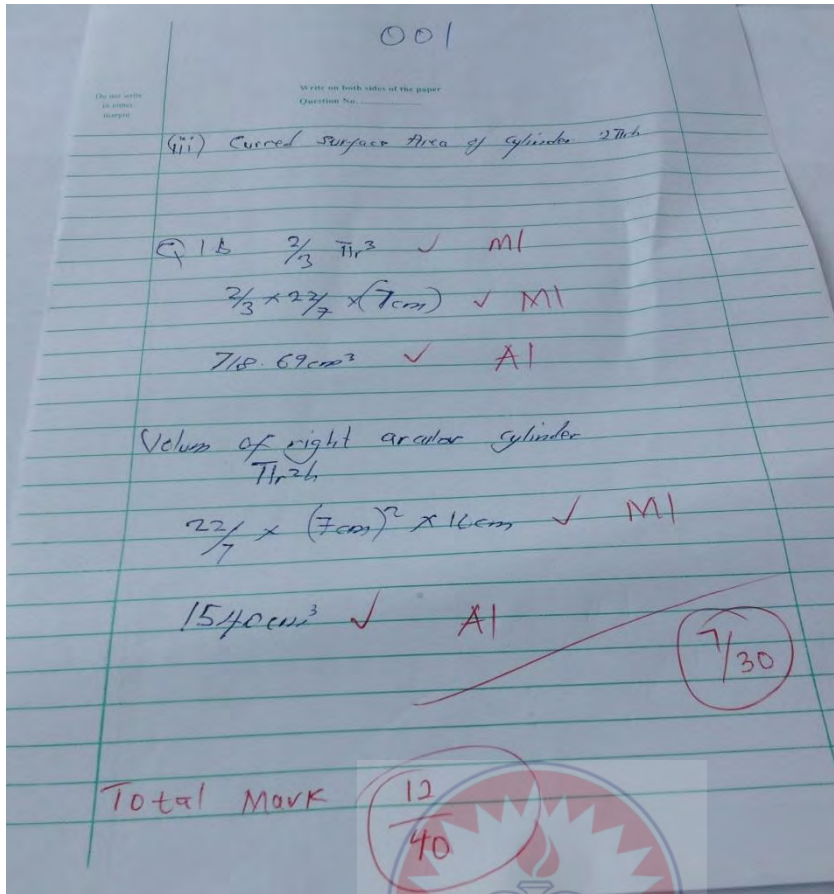 001
Do not write
in either
margin
Write on both sides of the paper
Question No.
(iii) Curved surface Area of cylinder 2πrh
Q 1b 2/3 πr³ ✓ M1
2/3 × 22/7 × (7cm) ✓ M1
718.69cm³ ✓ A1
Volum of right arcular cylinder
πr²h
22/7 × (7cm)² × 16cm ✓ M1
1540cm³ ✓ A1
7/30
Total Mark 12/40